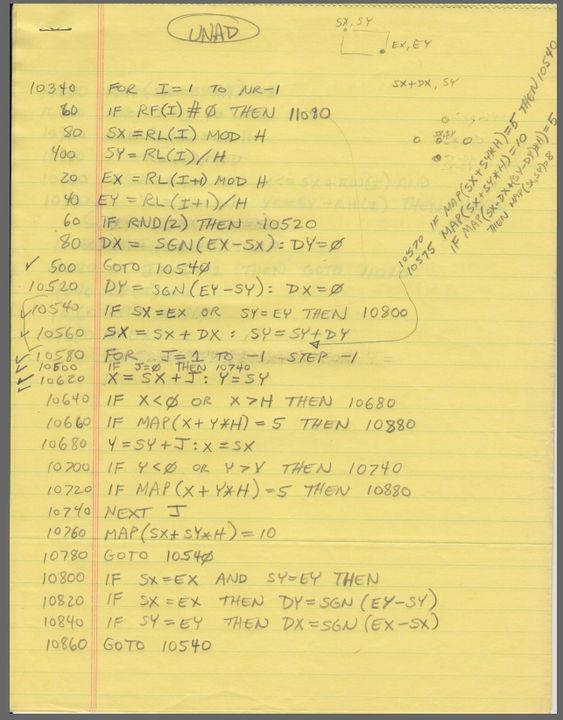 UNAD
SX, SY
EX, EY
SX+DX, SY
10340 FOR I=1 TO NR-1
60 IF RF(I)#0 THEN 11080
80 SX=RL(I) MOD H
400 SY=RL(I)/H
20 EX=RL(I+1) MOD H
40 EY=RL(I+1)/H
60 IF RND(2) THEN 10520
80 DX = SGN(EX-SX): DY=0
✓ 500 GOTO 10540
10520 DY = SGN(EY-SY): DX=0
✓ 10540 IF SX=EX OR SY=EY THEN 10800
✓ 10560 SX = SX+DX : SY=SY+DY
10570 IF MAP(SX+SY*H)=5 THEN 10540
10575 MAP(SX+SY*H)=10
IF MAP(SX-DX+(SY-DY)*H)=5
THEN
✓ 10580 FOR J=1 TO -1 STEP -1
✓ 10500 IF J=0 THEN 10740
✓ 10620 X = SX+J : Y=SY
10640 IF X<0 OR X>H THEN 10680
10660 IF MAP(X+Y*H)=5 THEN 10880
10680 Y=SY+J : X=SX
10700 IF Y<0 OR Y>V THEN 10740
10720 IF MAP(X+Y*H)=5 THEN 10880
10740 NEXT J
10760 MAP(SX+SY*H)=10
10780 GOTO 10540
10800 IF SX=EX AND SY=EY THEN
10820 IF SX=EX THEN DY=SGN(EY-SY)
10840 IF SY=EY THEN DX=SGN(EX-SX)
10860 GOTO 10540